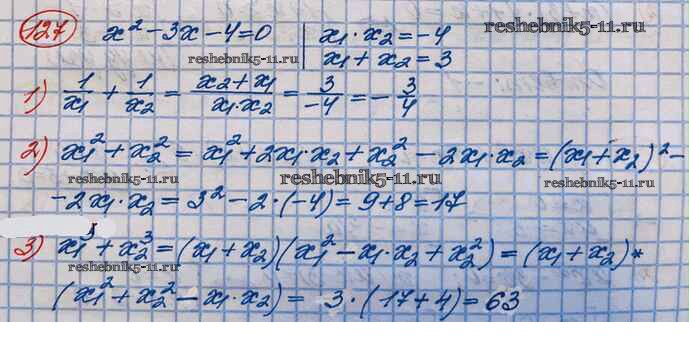 127 x² - 3x - 4 = 0 | x₁ · x₂ = -4
reshebnik5-11.ru | x₁ + x₂ = 3
reshebnik5-11.ru
1) 1/x₁ + 1/x₂ = (x₂ + x₁)/(x₁ · x₂) = 3/-4 = - 3/4
2) x₁² + x₂² = x₁² + 2x₁ · x₂ + x₂² - 2x₁ · x₂ = (x₁ + x₂)² -
reshebnik5-11.ru reshebnik5-11.ru reshebnik5-11.ru
- 2x₁ · x₂ = 3² - 2 · (-4) = 9 + 8 = 17
3) x₁³ + x₂³ = (x₁ + x₂)(x₁² - x₁ · x₂ + x₂²) = (x₁ + x₂) *
reshebnik5-11.ru reshebnik5-11.ru reshebnik5-11.ru
(x₁² + x₂² - x₁ · x₂) = 3 · (17 + 4) = 63